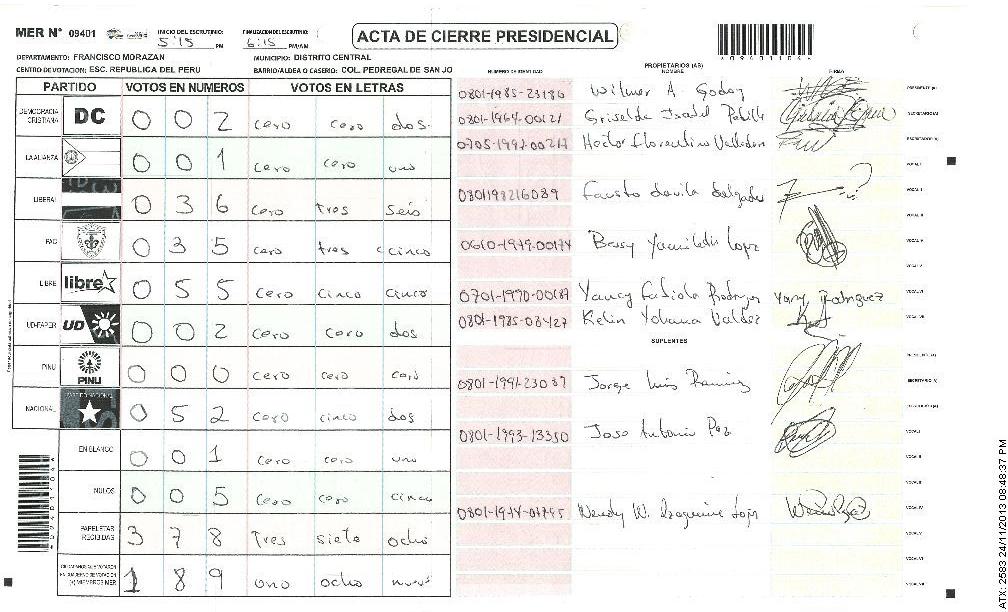 MER N° 09401
INICIO DEL ESCRUTINIO: 5:15 PM
FINALIZACION DEL ESCRUTINIO: 6:15 PM/AM
ACTA DE CIERRE PRESIDENCIAL
DEPARTAMENTO: FRANCISCO MORAZAN
MUNICIPIO: DISTRITO CENTRAL
CENTRO DE VOTACION: ESC. REPUBLICA DEL PERU
BARRIO/ALDEA O CASERIO: COL. PEDREGAL DE SAN JO
PARTIDO VOTOS EN NUMEROS VOTOS EN LETRAS
DEMOCRACIA CRISTIANA DC 0 0 2 cero cero dos
LA ALIANZA 0 0 1 cero cero uno
LIBERAL 0 3 6 cero tres seis
PAC 0 3 5 cero tres cinco
LIBRE libre 0 5 5 cero cinco cinco
UD-FAPER UD 0 0 2 cero cero dos
PINU PINU 0 0 0 cero cero cero
NACIONAL 0 5 2 cero cinco dos
EN BLANCO 0 0 1 cero cero uno
NULOS 0 0 5 cero cero cinco
PAPELETAS RECIBIDAS 3 7 8 tres siete ocho
CIUDADANOS QUE VOTARON EN CUADERNO DE VOTACION (+) MIEMBROS MER 1 8 9 uno ocho nueve
NUMERO DE IDENTIDAD
PROPIETARIOS (AS)
NOMBRE
FIRMA
0801-1985-23186 Wilmer A. Godoy PRESIDENTE (A)
0801-1964-00121 Griselda Isabel SECRETARIO (A)
Hector Florentino
VOCAL I
0801198216089 Fausto Davila VOCAL II
VOCAL III
0610-1979-00174 Bessy Lopez VOCAL IV
VOCAL V
0701-1990-00187 Yancy Fabiola Rodriguez Yancy Rodriguez
0801-1985-08427 Kelin Yohana Valdez
SUPLENTES
PRESIDENTE (A)
0801-1991-23087 Jorge Luis Ramirez SECRETARIO (A)
0801-1993-13350 Jose Antonio Paz VOCAL I
VOCAL II
VOCAL III
Wendy W. VOCAL IV
VOCAL V
VOCAL VI
VOCAL VII
ATX: 2583 24/11/2013 08:48:37 PM